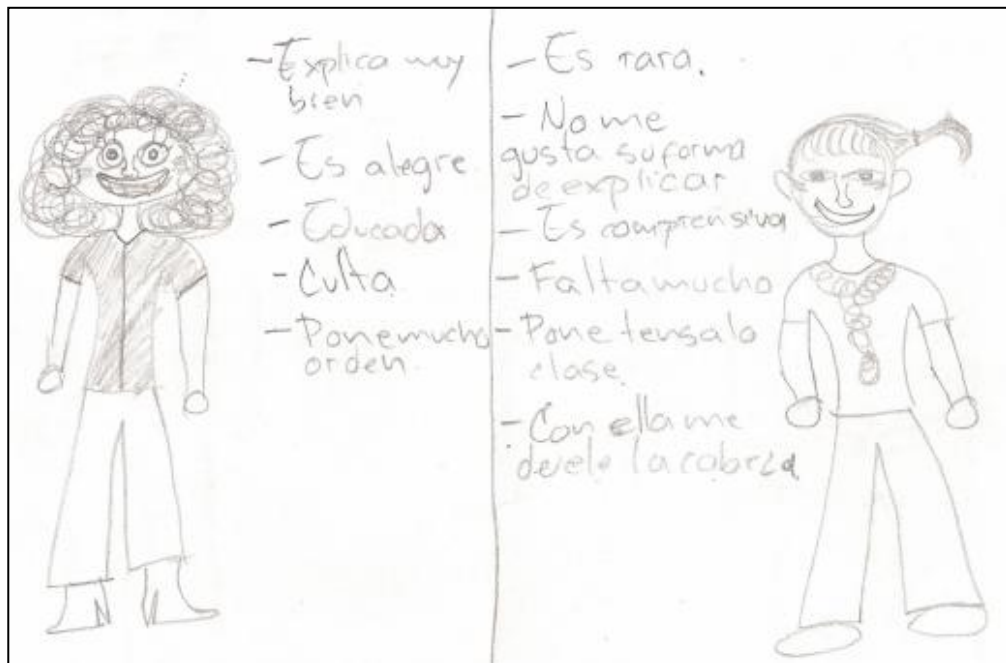 - Explica muy
bien
- Es alegre
- Educada
- Culta
- Pone mucho
orden.
- Es rara.
- No me
gusta su forma
de explicar
- Es comprensiva
- Falta mucho
- Pone tensa la
clase.
- Con ella me
deuele la cabeza